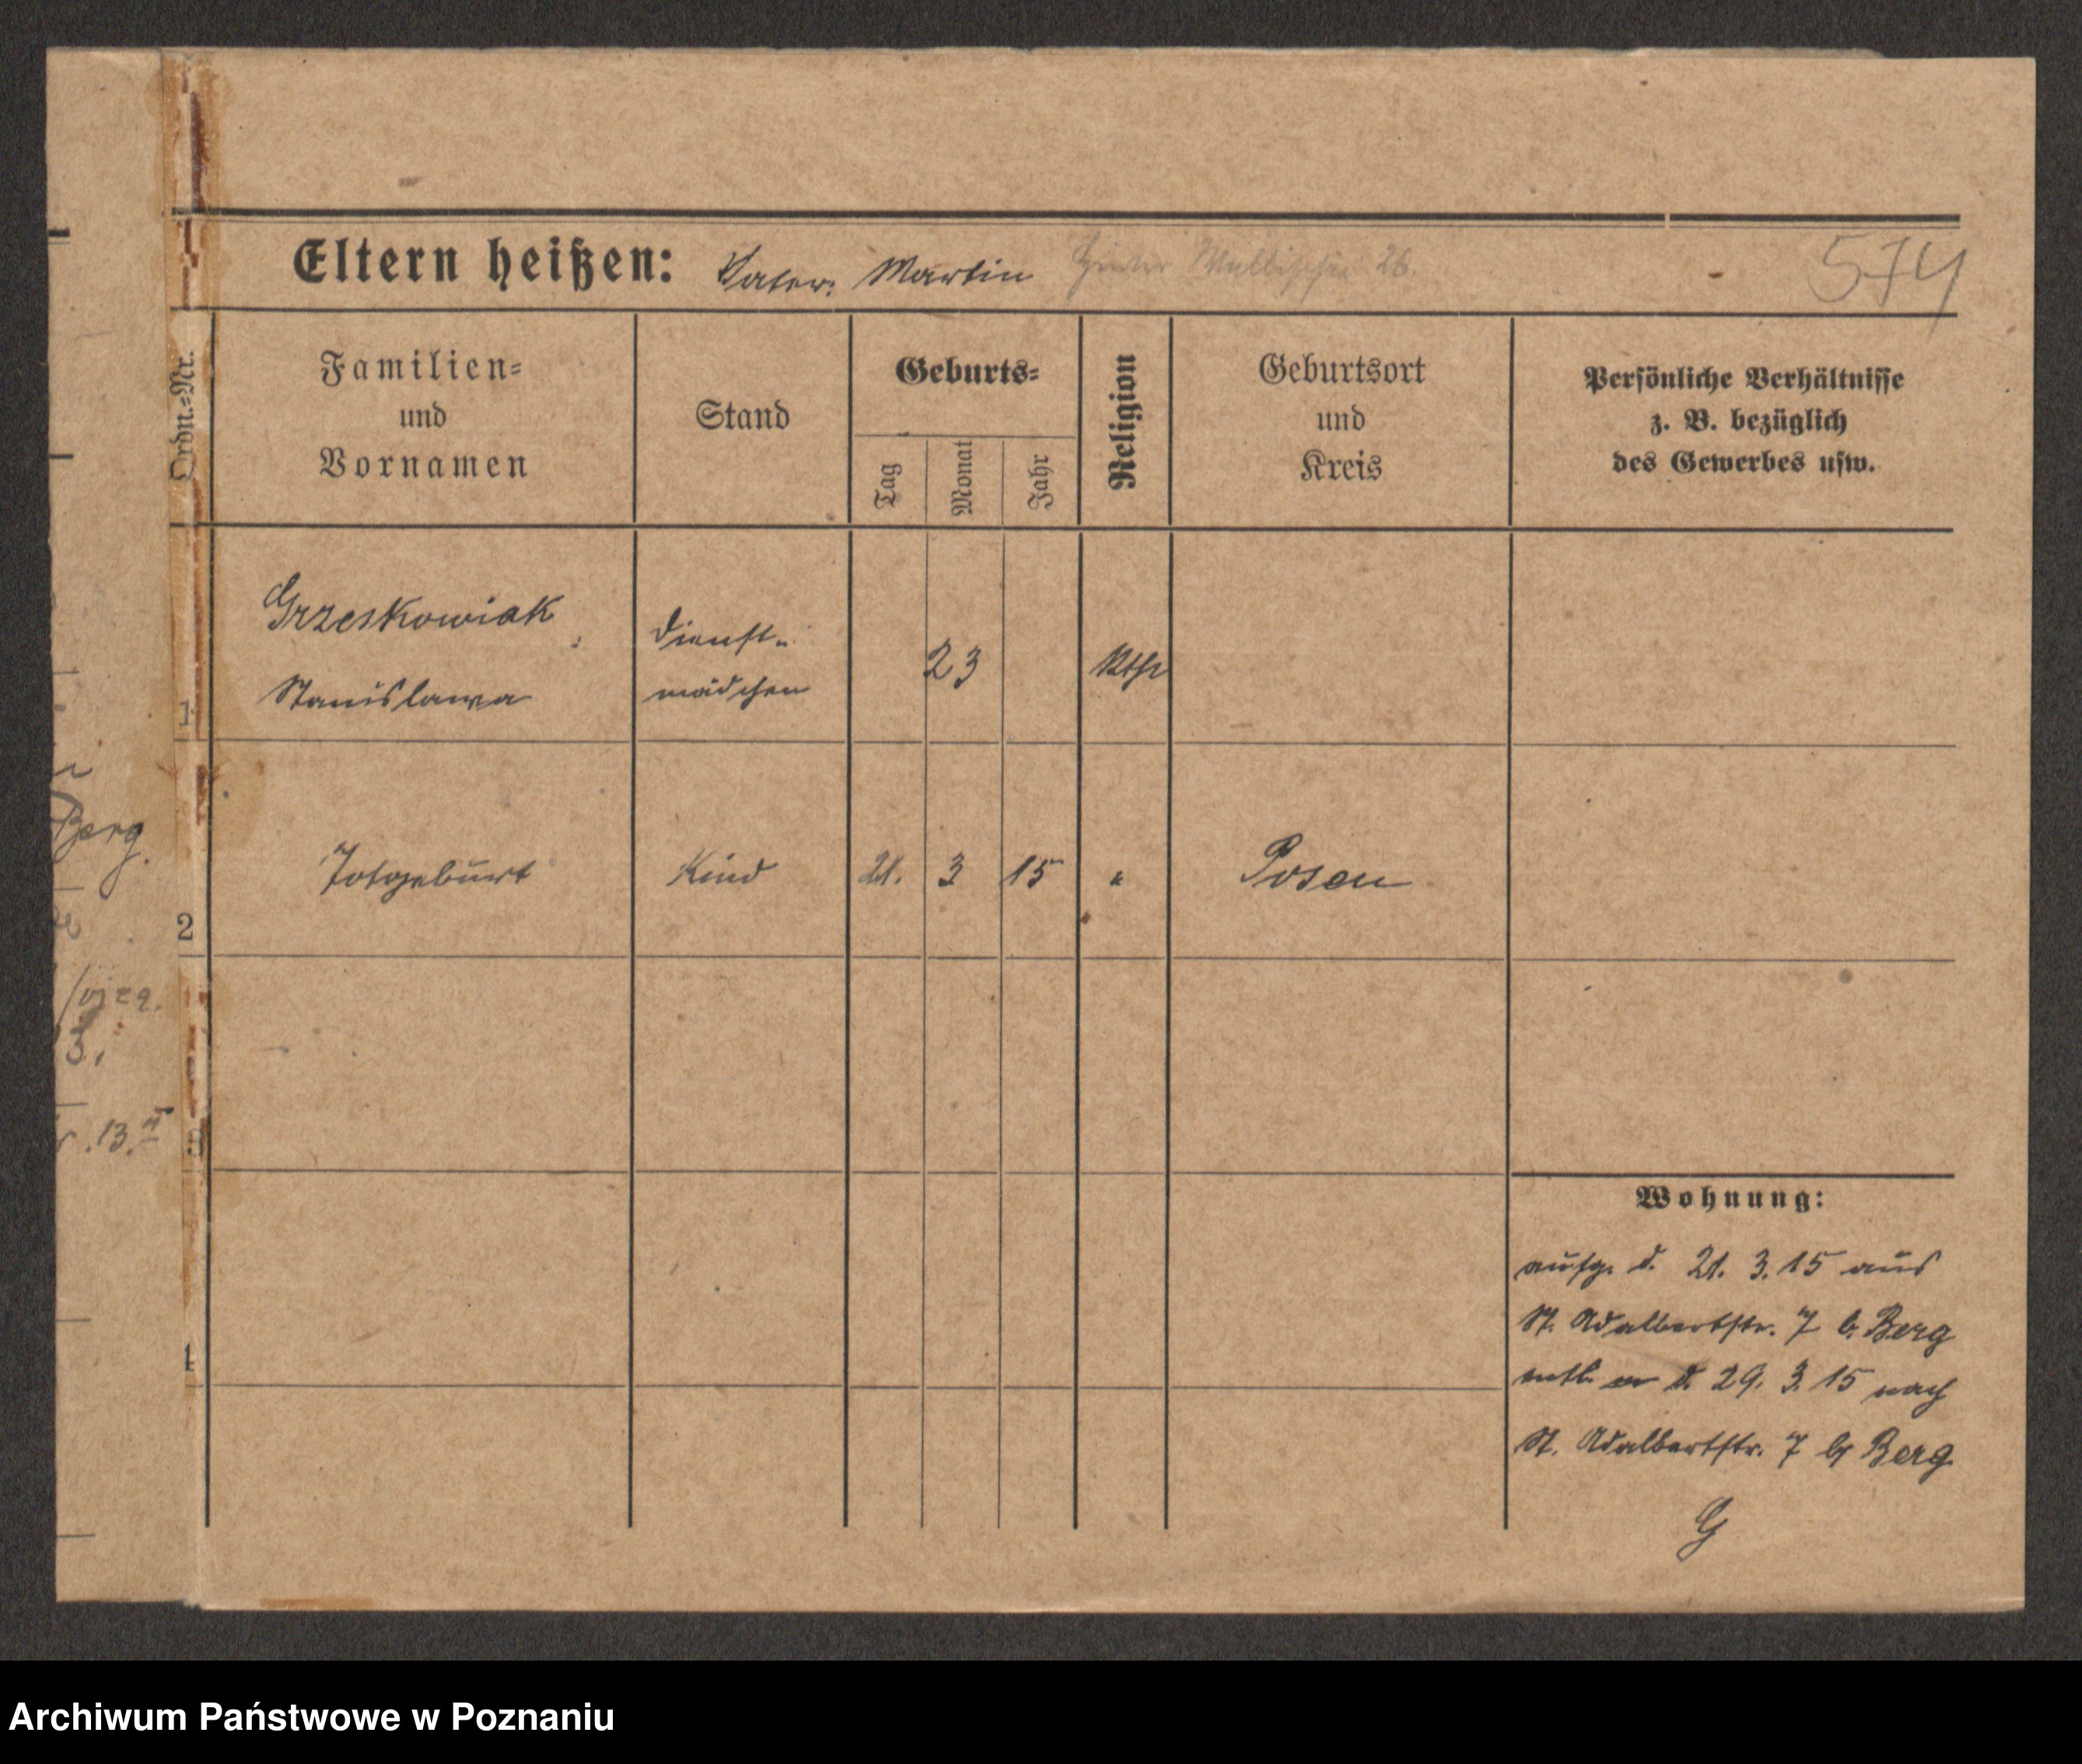 Eltern heißen: Vater: Martin Hinter Wallischei 26 574
Ordn.=Nr.
Familien=
und
Vornamen
Stand
Geburts=
Tag
Monat
Jahr
Religion
Geburtsort
und
Kreis
Persönliche Verhältnisse
z. B. bezüglich
des Gewerbes usw.
1
Grzeskowiak
Stanislawa
Dienst-
mädchen
23
2
Totgeburt
Kind
21.
3
15
"
Posen
3
4
Wohnung:
aufg. d. 21. 3. 15 aus
St. Adalbertstr. 7 b. Berg
entl. d. 29. 3. 15 nach
St. Adalbertstr. 7 b. Berg
G
Berg.
13.
Archiwum Państwowe w Poznaniu